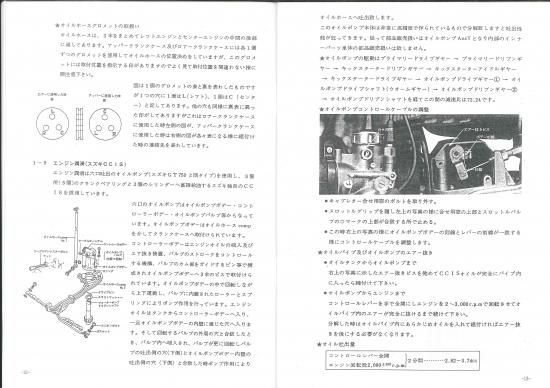 ★オイルホースグロメットの取扱い
オイルホースは、3本をまとめてレフトエンジンとセンターエンジンの中間の後部
に通してあります。アッパークランクケース及びロアークランクケースには各1個
ずつのグロメットを使用してオイルホースの位置決めをしていますが、このグロメ
ットには取付位置を指示する目がありますのでよく見て取付位置を間違わない様に
御注意下さい。
図は1個のグロメットの表と裏を表わしたものです
が1つの穴に1側はL(レフト)、1側はC(センタ
ー)と記してあります。他の穴も同様に表裏に異っ
た目がしてありますがこれはロアークランクケース
に使用した時左側の図が、アッパークランクケース
に使用した時は右側の図が各々表になる様に組付け
た時の連絡先を表わしています。
1-9 エンジン潤滑(スズキCCIS)
エンジン潤滑は六口吐出のオイルポンプ(スズキGT750と同タイプ)を使用し、3個
所(5個)のクランクベアリングと3個のシリンダーへ直接給油するスズキ独自のCC
ISを使用しています。
六口のオイルポンプはオイルポンプボデー・コント
ローラーボデー・オイルポンプバルブ等からなって
います。オイルポンプボデーはオイルホース comp
をかしてクランクケースへ取付けられています。
コントローラーボデーはエンジンオイルの吸入及び
エア抜き装置、バルブのストロークをコントロール
する機構、
成されオイルポンプボデーへ3本のビスで取付けら
れています。オイルポンプボデーの中で回転しなが
ら上下運動し、バルブに内蔵されたローラーとスプ
リングによりポンプ作用を行っています。エンジン
オイルはタンクからコントローラーボデーへ入り、
一旦オイルポンプボデーの内壁に通じた穴へ入りま
す。そして回転するバルブの外周の穴と合致したと
き、バルブ内へ吸入され、バルブが更に回転しバル
ブの吐出側の穴(下側)とオイルポンプボデー内壁の
吐出側の穴(下側)と合致した時ポンプ作用により
-12-
オイルホースへ吐出致します。
このオイルポンプ本体は非常に高精度で作られているもので分解致しますと吐出性
能が狂ってきます。従って部品販売扱いはオイルポンプ Ass'y となり内部のインナ
ーパーツ単体の部品販売扱いは致しません。
★オイルポンプの駆動はプライマリードライブギヤー → プライマリードリブンギ
ヤー → キックスタータードリブンギヤー → キックスターターアイドルギヤー
→ キックスタータードライブギヤー → オイルポンプドライブギヤー① → オイ
ルポンプドライブシャフト(ウオームギヤー) → オイルポンプドリブンギヤー②
→ オイルポンプドリブンシャフトを経てこの間の減速比は72.24です。
★オイルポンプコントロールケーブルの調整
★キャブレター合せ用窓のボルトを取り外す。
★スロットルグリップを廻した上の写真の様に合せ用窓の上部とスロットルバル
ブの○マークの上部が合致する所で止める。
★この時右上の写真の様にオイルポンプボデーの刻線とレバーの刻線が一致する
様にコントロールケーブルを調整します。
★オイルパイプ及びオイルポンプのエアー抜き
★オイルタンクからオイルポンプまで
右上の写真に示したエアー抜きビスを弛めてCCISオイルが完全にパイプ内
に入ったら締付けて下さい。
★オイルポンプからエンジンまで
コントロールレバーを手で全開にしエンジンを2～3,000r.p.mで回転させてオ
イルパイプ内のエアーが完全に抜けるまで続けて下さい。
分解した時はオイルパイプ内にあらかじめオイルを入れて組付ければエアー抜
きを後にする必要がなくなります。
★オイル吐出量
コントロールレバー全開
エンジン回転数2,000 r.p.m
2分間………2.82～3.74cc
-13-